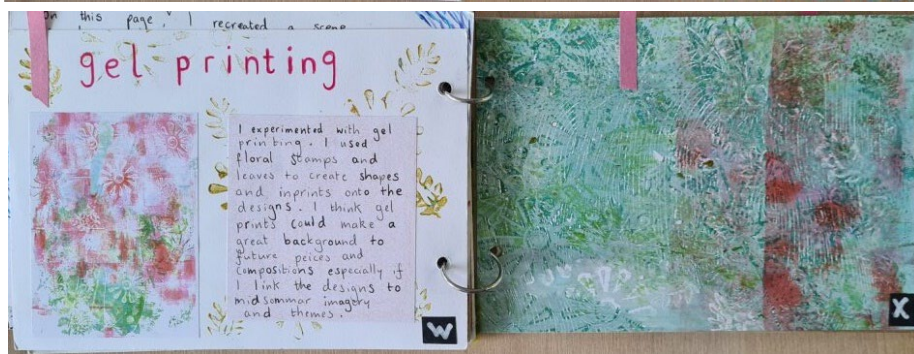 on this page, I recreated a scene
gel printing
I experimented with gel
printing. I used
floral stamps and
leaves to create shapes
and inprints onto the
designs. I think gel
prints could make a
great background to
future peices and
compositions especially if
I link the designs to
midsommar imagery
and themes.
W
X